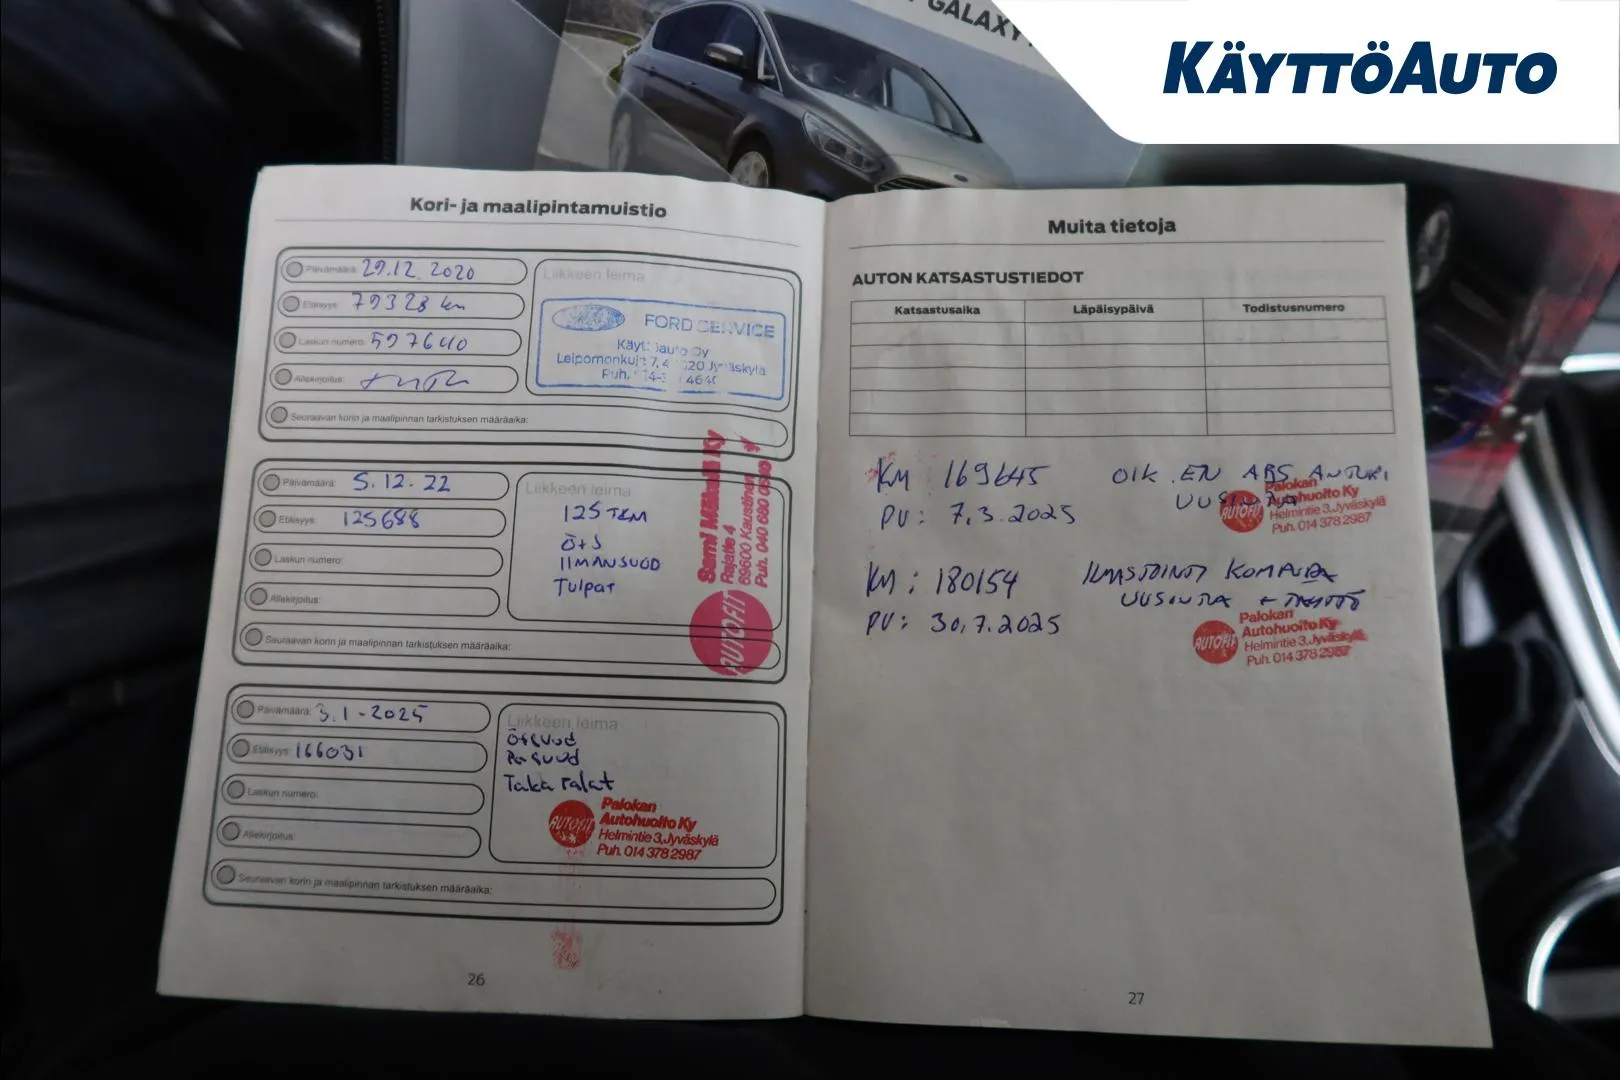 GALAXY
KÄYTTÖAUTO
Kori- ja maalipintamuistio
Päivämäärä: 29.12.2020
Etäisyys: 79328 km
Laskun numero: 597640
Allekirjoitus:
Seuraavan korin ja maalipinnan tarkistuksen määräaika:
Liikkeen leima
FORD SERVICE
Oy
Leipomonkuja 7, Jyväskylä
Puh. 4640
Päivämäärä: 5.12.22
Etäisyys: 125688
Laskun numero:
Allekirjoitus:
Seuraavan korin ja maalipinnan tarkistuksen määräaika:
Liikkeen leima
125 TKM
Ö+S
IIMANSUOD
Tulpat
AUTOFIT
Sami Ky
Rajatie 4
69600 Kaustinen
Puh. 040 680
Päivämäärä: 3.1-2025
Etäisyys: 166031
Laskun numero:
Allekirjoitus:
Seuraavan korin ja maalipinnan tarkistuksen määräaika:
Liikkeen leima
Ö+suod
Taka
AUTOFIT
Palokan
Autohuolto Ky
Helmintie 3, Jyväskylä
Puh. 014 378 2987
26
Muita tietoja
AUTON KATSASTUSTIEDOT
Katsastusaika Läpäisypäivä Todistusnumero
KM 169645 OIK. EN ABS ANTURI
PV: 7.3.2025 UUSINTA
AUTOFIT
Palokan
Autohuolto Ky
Helmintie 3, Jyväskylä
Puh. 014 378 2987
KM: 180154 ILMASTOINTI
PV: 30.7.2025 UUSINTA + TÄYTTÖ
AUTOFIT
Palokan
Autohuolto Ky
Helmintie 3, Jyväskylä
Puh. 014 378 2987
27